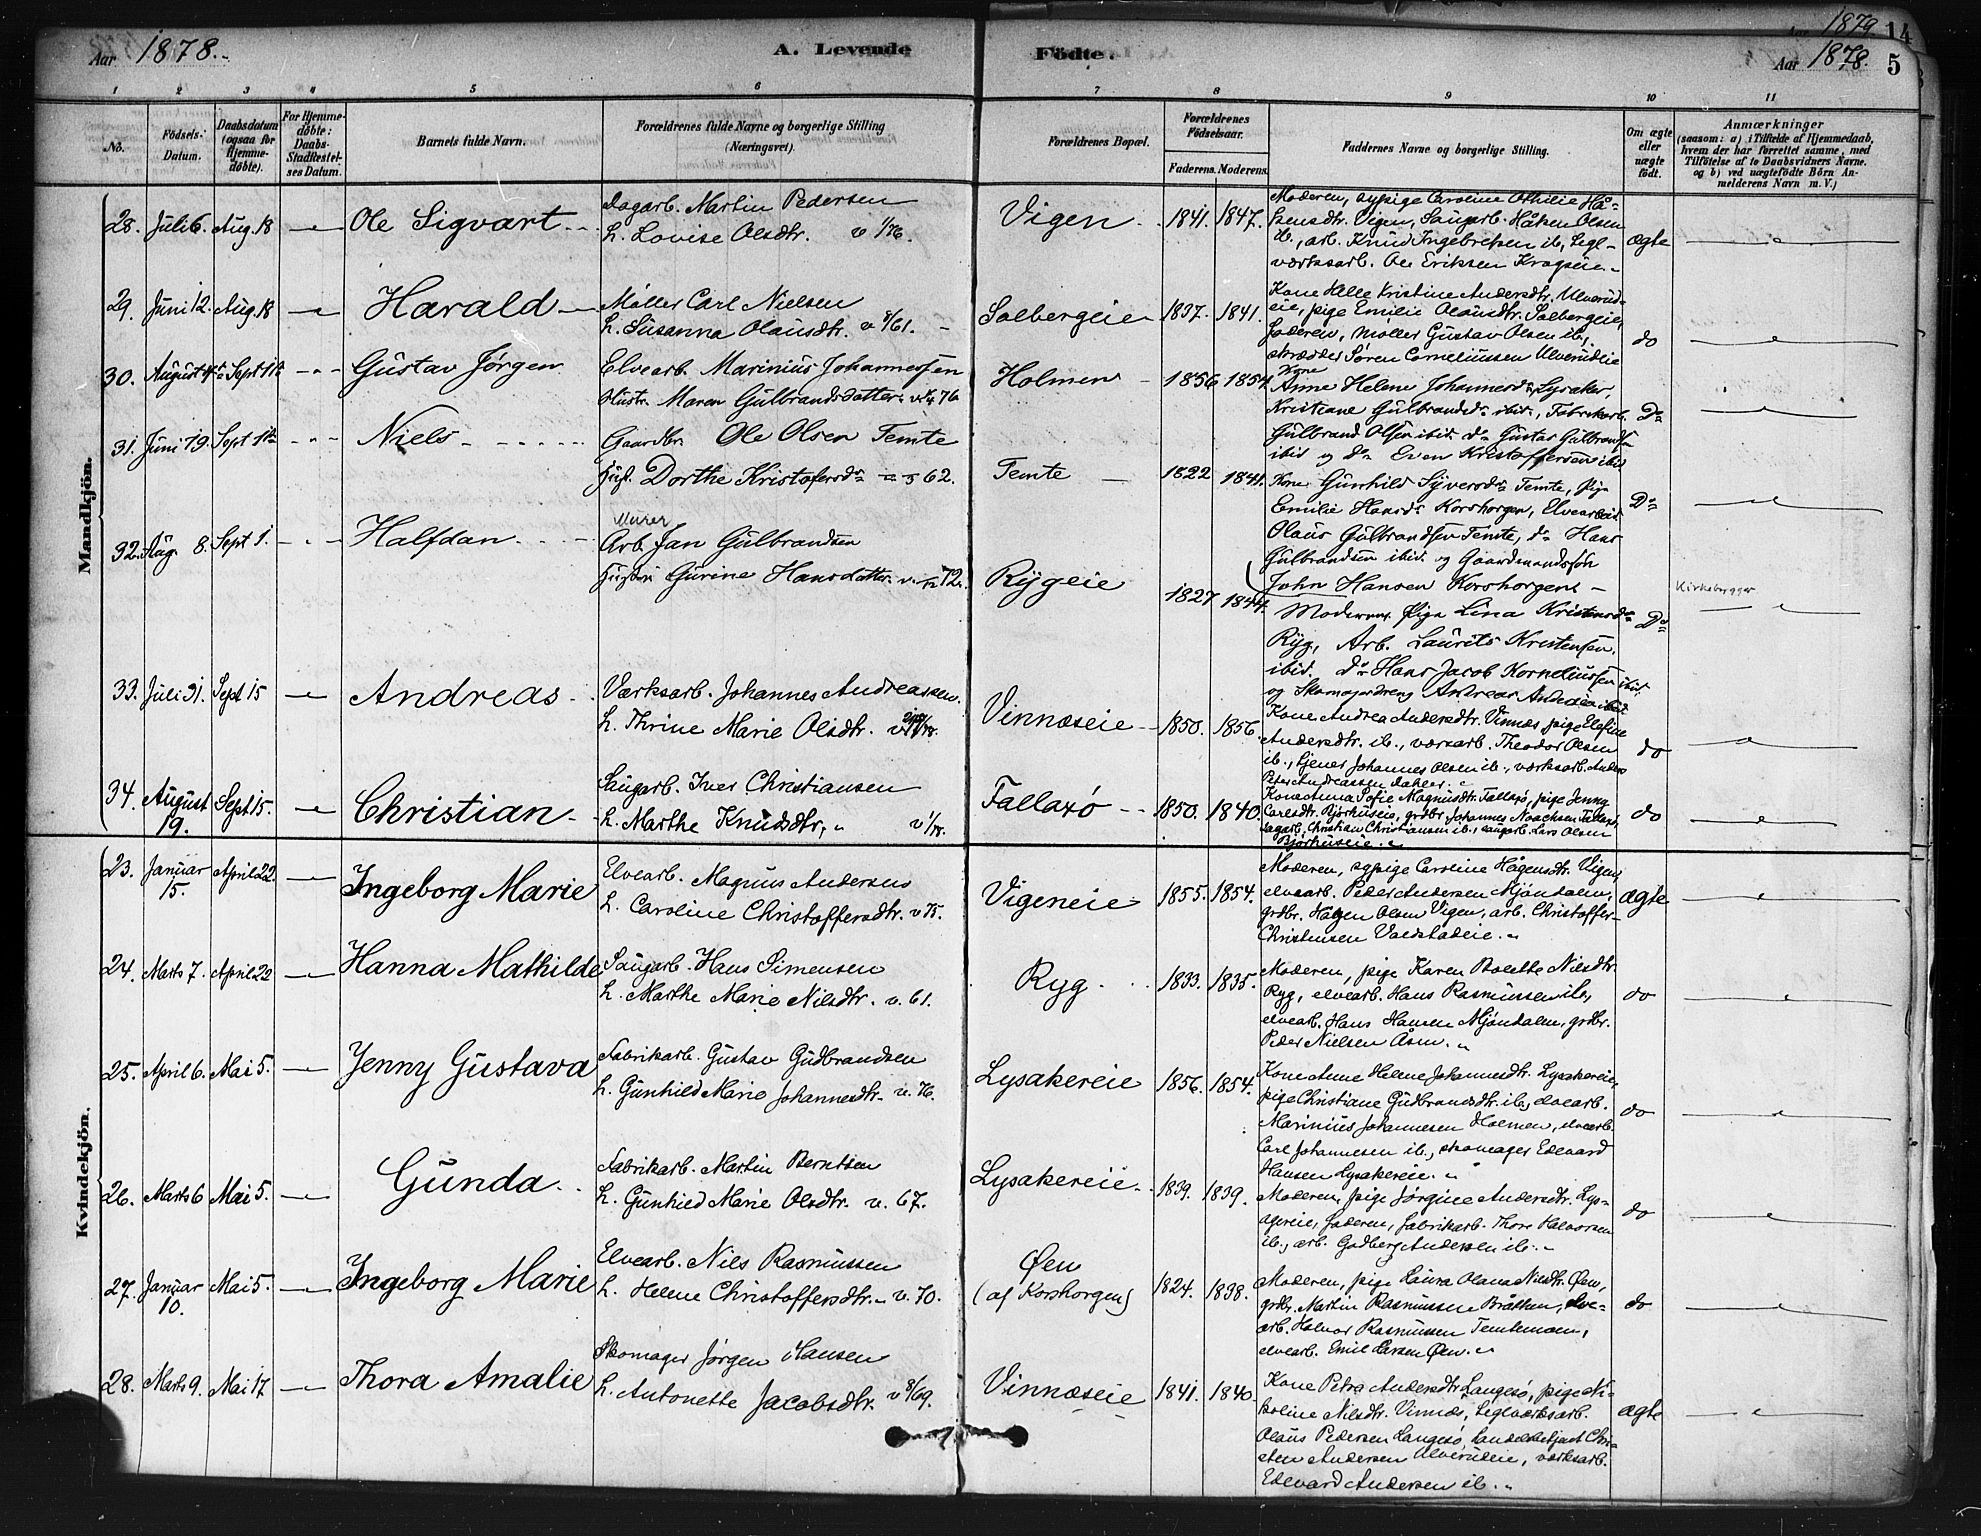 Aar 1878.
A. Levende
Födte.
1879 14
Aar 1878. 5
1 2 3 4 5 6 7 8 9 10 11
No.
Födsels-Datum.
Daabsdatum (ogsaa for Hjemmedöbte).
For Hjemmedöbte: Daabs-Stadfæstelses Datum.
Barnets fulde Navn.
Forældrenes fulde Navne og borgerlige Stilling (Næringsvei).
Forældrenes Bopæl.
Forældrenes Födselsaar.
Faderens. Moderens.
Faddernes Navne og borgerlige Stilling.
Om ægte eller uægte födt.
Anmærkninger
(saasom: a) i Tilfælde af Hjemmedaab,
hvem der har forrettet samme, med
Tilföielse af to Daabsvidners Navne.
og b) ved uægtefödte Börn Anmelderens
Navn m. V.)
Mandkjön.
28. Juli 6. Aug. 18 Ole Sigvart
Dagarb. Martin Pedersen
h. Lovise Olsdtr. v 1/76.
Vigen 1841. 1847.
Moderen, sypige Caroline Othilie Hå-
kensdtr. Vigen, Saugarb. Håken Olsen
ib., arb. Knud Ingebretsen ib., tegl-
værksarb. Ole Eriksen Kragseie.
ægte
29. Juni 12. Aug. 18 Harald
Møller Carl Nielsen
h. Susanna Olausdtr. v 8/61.
Solbergeie 1837. 1841.
Kone Helle Kristine Andersdtr. Ulverud-
eie, pige Emilie Olausdtr. Solbergeie,
Faderen, Møller Gustav Olsen ib.,
skrædder Søren Corneliussen Ulverudeie
do
30. August 4 Sept 1ste Gustav Jørgen
Elvearb. Marinius Johannessen
Hustr. Maren Gulbrandsdatter 76
Holmen 1856 1854
Kone
Anne Helene Johannesdr, Lysaker,
Kristiane Gulbrandsd. ibid., Fabrikarb.
Gulbrand Olsen ibid. do Gustav Gulbrandsen
ibid og do Even Kristoffersen ibid
Do
31. Juni 19. Sept 1ste Niels
Gaardbr. Ole Olsen Temte
Hust. Dorthe Kristofersdr 62.
Temte 1822 1841.
Kone Gunhild Syversdr Temte, Pige
Emilie Hansdr Korshorgen, Elvearbeid
Olaus Gulbrandsen Temte, do Hans
Gulbrandsen ibid. og Gaardmandssøn
John Hansen Korshorgen
Do
32. Aug. 8. Sept 1. Halfdan
Murer
Arb. Jan Gulbrandsen
Hustru Gurine Hansdatter v. 72.
Rygeie 1827 1844.
Moderen Pige Lina Kristensdr
Ryg, Arb. Laurits Kristensen
ibid. do Hans Jacob Korneliussen ibid
og Skomagerdreng Andreas Andersen ibid
Do
Kirkebygger
33. Juli 31. Sept 15 Andreas
Værksarb. Johannes Andreassen.
h. Thrine Marie Olsdtr.
Vinnæseie 1850. 1856.
Kone Andrea Andersdtr. Vinnæs pige Elefine
Andersdtr. ib., værksarb. Theodor Olsen
ib., tjener Johannes Olsen ib., værksarb. Anders
Peter Andreassen Dahler.
do
34. August 19. Sept 15. Christian
Saugarb. Iver Christiansen
h. Marthe Knudsdtr.
Fallaxø 1850. 1840.
Kone Anna Sofie Magnusdtr. Fallaxø, pige Jenny
Carlsdtr. Bjørhuseie, grdbr. Johannes Noachsen Fallaxø,
sagarb. Christian Christiansen ib., saugarb. Lars Olsen
Bjørhuseie.
do
Kvindekjön.
23. Januar 15. April 22. Ingeborg Marie
Elvearb. Magnus Andersen
h. Caroline Christoffersdtr. v 75.
Vigeneie 1855. 1854.
Moderen, sypige Caroline Hågensdtr. Vigen,
elvearb. Peder Andersen Mjøndalen,
grdbr. Hågen Olsen Vigen, arb. Christoffer
Christensen Valdstadeie.
ægte
24. Marts 7. April 22 Hanna Mathilde
Saugarb. Hans Simensen
h. Marthe Marie Nilsdtr. v. 61.
Ryg 1833. 1835.
Moderen, pige Karen Bolette Nilsdtr.
Ryg, elvearb. Hans Rasmussen ib.,
elvearb. Hans Hansen Mjøndalen, grdbr.
Peder Nielsen Åsen.
do
25. April 6. Mai 5. Jenny Gustava
Fabrikarb. Gustav Gudbrandsen
h. Gunhild Marie Johannesdtr. v. 76.
Lysakereie 1856. 1854.
Kone Anne Helene Johannesdtr. Lysakereie,
pige Christiane Gudbrandsdtr. ib., elvearb.
Marinius Johannesen Holmen, elvearb.
Carl Johannesen ib., skomager Edevard
Hansen Lysakereie.
do
26. Marts 6 Mai 5. Gunda
Fabrikarb. Martin Berntsen
h. Gunhild Marie Olsdtr. v. 67.
Lysakereie 1839. 1839.
Moderen, pige Jørgine Andersdtr. Lys-
agereie, Faderen, fabrikarb. Thore Halvorsen
ib., arb. Godberg Andersen ib.
do
27. Januar 10. Mai 5. Ingeborg Marie
Elvearb. Nils Rasmussen
h. Helene Christoffersdtr. v. 70.
Øen
(af Korshorgen) 1824. 1838.
Moderen, pige Laura Olava Nilsdtr. Øen,
grdbr. Martin Rasmussen Bråthen, elve-
arb. Halvor Rasmussen Temtemoen,
elvearb. Emil Larsen Øen.
do
28. Marts 9. Mai 17 Thora Amalie
Skomager Jørgen Hansen
h. Antonette Jacobsdtr. v 8/69.
Vinnæseie 1841. 1840.
Kone Petra Andersdtr. Langesø, pige Ni-
koline Nilsdtr. Vinnæs, teglværksarb.
Olaus Pedersen Langesø, handelsbetjent Chri-
sten Andersen Ulverudeie, værksarb.
Edevard Andersen ib.
ægte